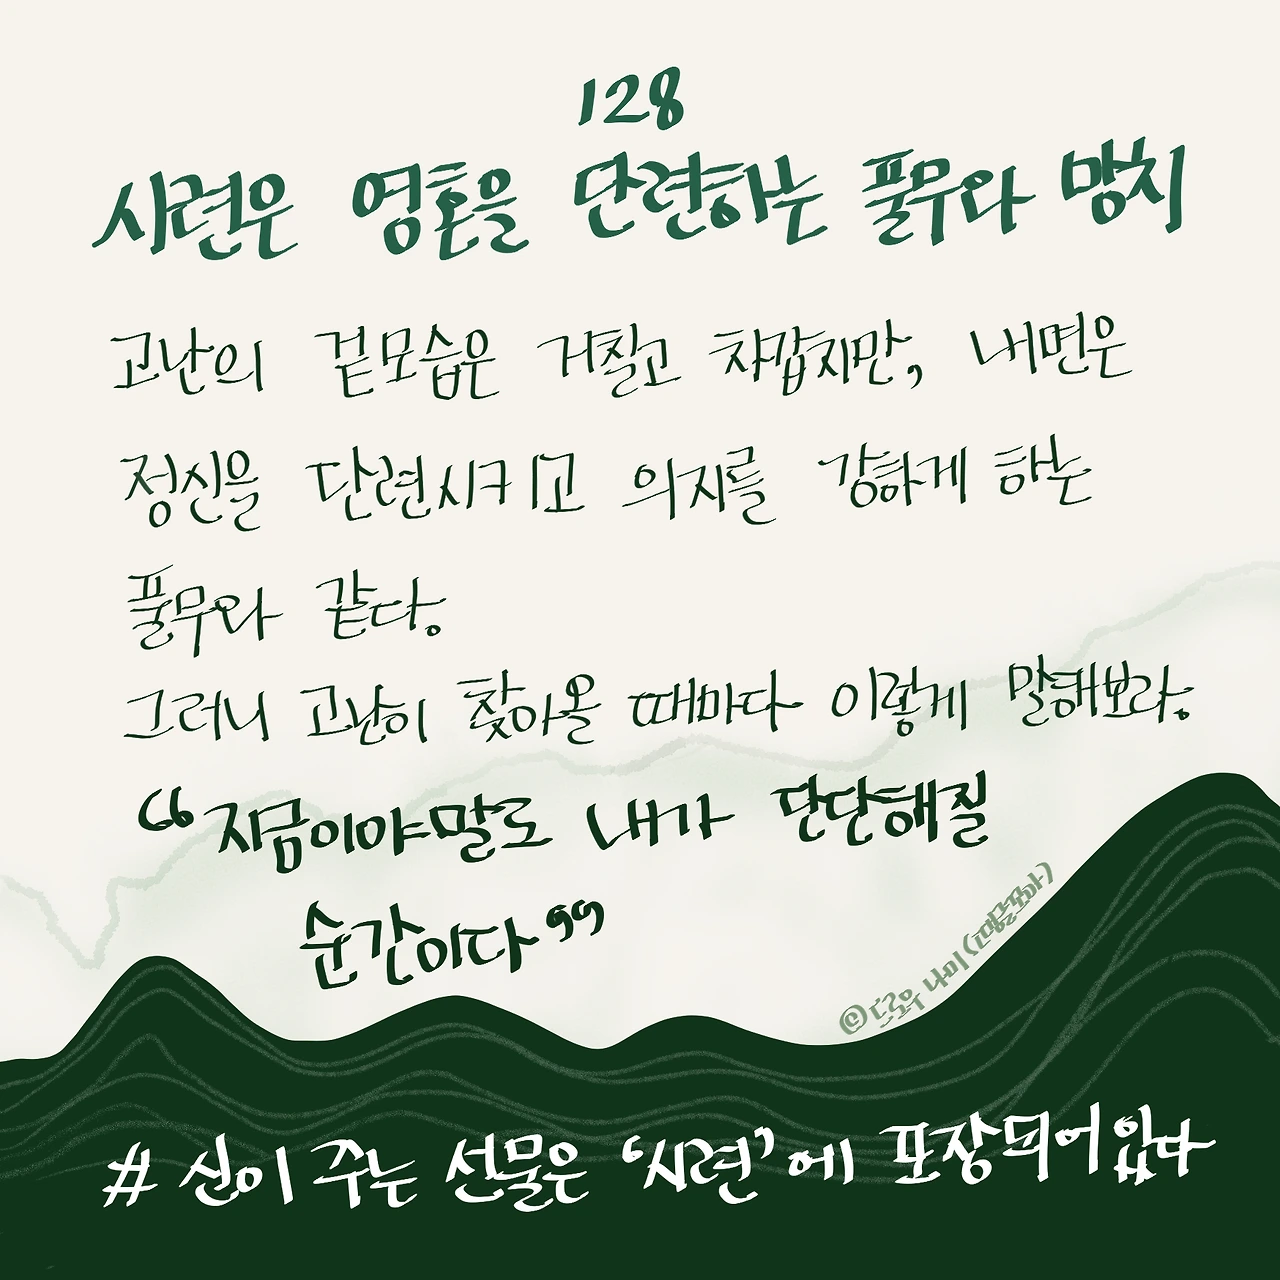 128
시련은 영혼을 단련하는 풀무와 망치
고난의 겉모습은 거칠고 차갑지만, 내면은
정신을 단련시키고 의지를 강하게 하는
풀무와 같다.
그러니 고난이 찾아올 때마다 이렇게 말해보라.
“지금이야말로 내가 단단해질
순간이다”
# 신이 주는 선물은 ‘시련’에 포장되어있다